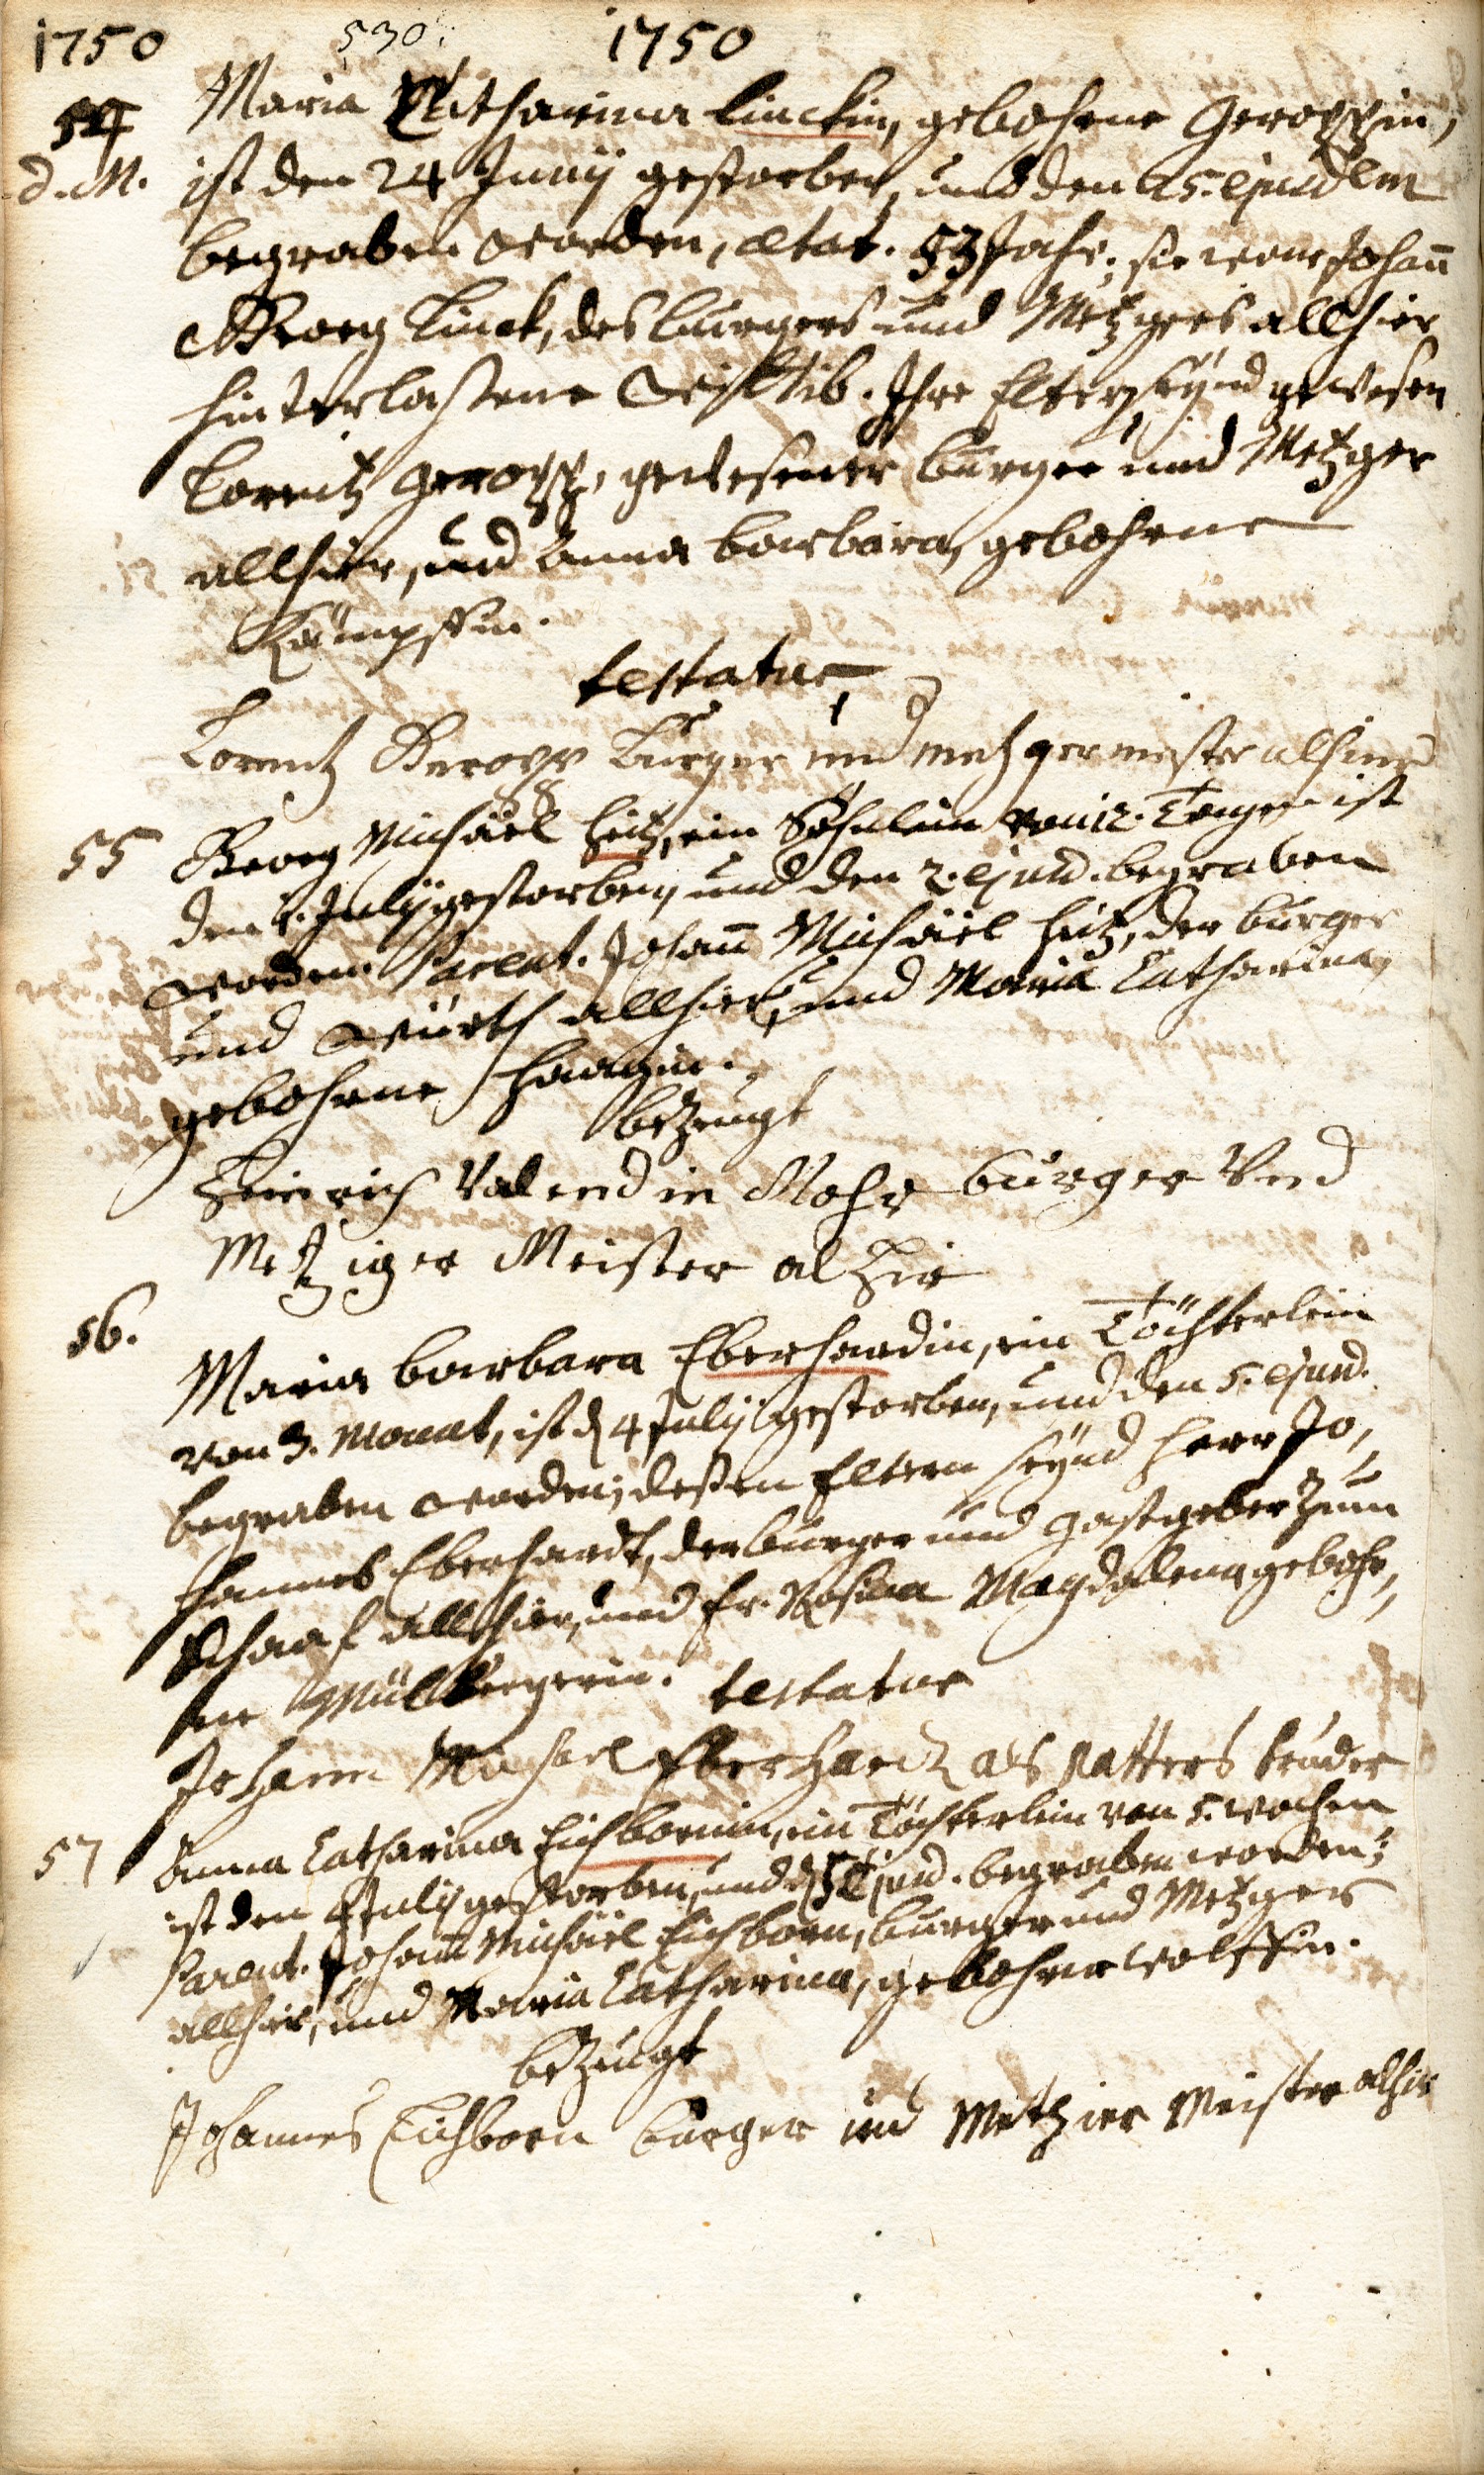 1750 530. 1750
54 Maria Catharina Linckin, gebohrne Geroppin,
d. M. ist den 24 Junij gestorben, und den 25. ejusdem
begraben worden, ætat. 53 Jahr; sie war Johañ
Georg Linck, des burgers und Metzgers allhier
hinterlaßene Wittib. Ihre Eltern seynd gewesen
Lorentz Geropp, gewesener burger und Metzger
allhier, und Anna barbara, gebohrne
Kämpffin.
testatur
Lorentz Geropp burger und metzger meister alhier
55 Georg Michäel Hitz, ein Söhnlein von 12. Tagen ist
den 1. Julij gestorben, und den 2. ejusd. begraben
worden. Parent. Johañ Michäel Hitz, der burger
und Würth allhier, und Maria Catharina,
gebohrne Haagin.
bezeugt
Heinrich Valendin Rohr burger Und
Metziger Meister al Hir
56. Maria barbara Eberhardin, ein Töchterlein
von 3. Monat, ist d 4 Julij gestorben, und den 5. ejusd.
begraben worden; deßen Eltern seynd Herr Jo,
hannes Eberhardt, der burger und Gastgeber Zum
Schaaf allhier, und Fr. Rosina Magdalena gebohr,
ne Müllbergerin. testatur
Johann Michael Eberhardt als Vatters bruder
57 Anna Catharina Eichbornin, ein Töchterlein von 5. wochen
ist den 4 Julij gestorben, und d 5 Ejusd. begraben worden;
Parent. Johañ Michäel Eichborn, burger und Metzger
allhier, und Maria Catharina, gebohrne Wolffin.
bezeugt
Johannes Eichborn burger und Metzier Meister alhir